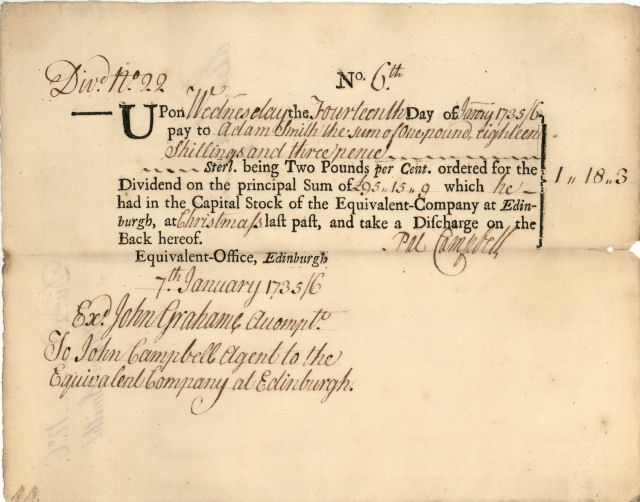 Div.d No 22
No. 6.th
Upon Wednesday the Fourteenth Day of Janry 1735/6
pay to Adam Smith the sum of One pound, eighteen
Shillings and three pence
Sterl. being Two Pounds per Cent. ordered for the
Dividend on the principal Sum of £95 " 15 " 9 which he
had in the Capital Stock of the Equivalent-Company at Edin-
burgh, at Christmass last past, and take a Discharge on the
Back hereof.
1 " 18 " 3
Pat Campbell
Equivalent-Office, Edinburgh
7.th January 1735/6
Exd. John Grahame Accomptt.
To John Campbell Agent to the
Equivalent Company at Edinburgh.